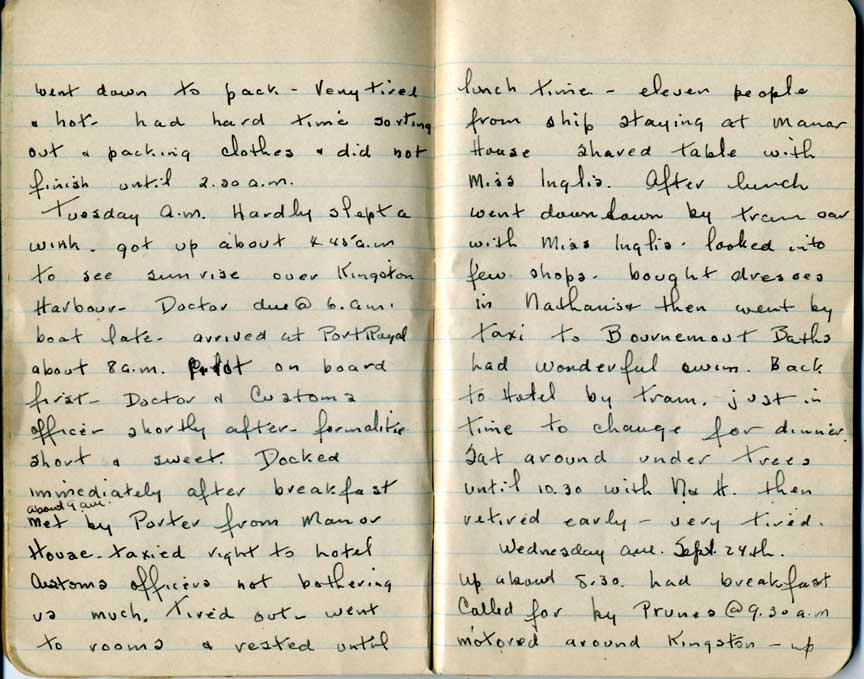 went down to pack - Very tired
& hot - had hard time sorting
out & packing clothes & did not
finish until 2.30 a.m.
Tuesday a.m. Hardly slept a
wink. got up about 4.45 a.m
to see sunrise over Kingston
Harbour - Doctor due @ 6.a.m.
boat late - arrived at Port Royal
about 8 a.m. Pilot on board
first - Doctor & Customs
officer shortly after - formalities
short & sweet. Docked
immediately after breakfast
about 9 a.m.
met by Porter from Manor
House - taxied right to hotel
Customs officers not bothering
us much. Tired out - went
to rooms & rested until
lunch time. - eleven people
from ship staying at Manor
House shared table with
Miss Inglis. After lunch
went downtown by tram car
with Miss Inglis. looked into
few shops. bought dresses
in Nathan's & then went by
taxi to Bournemout Baths
had wonderful swim. Back
to Hotel by tram, just in
time to change for dinner.
Sat around under trees
until 10.30 with & H. then
retired early - very tired.
Wednesday a.m. Sept. 24th.
up about 8.30. had breakfast
Called for by Prunes @ 9.30 a.m
motored around Kingston - up